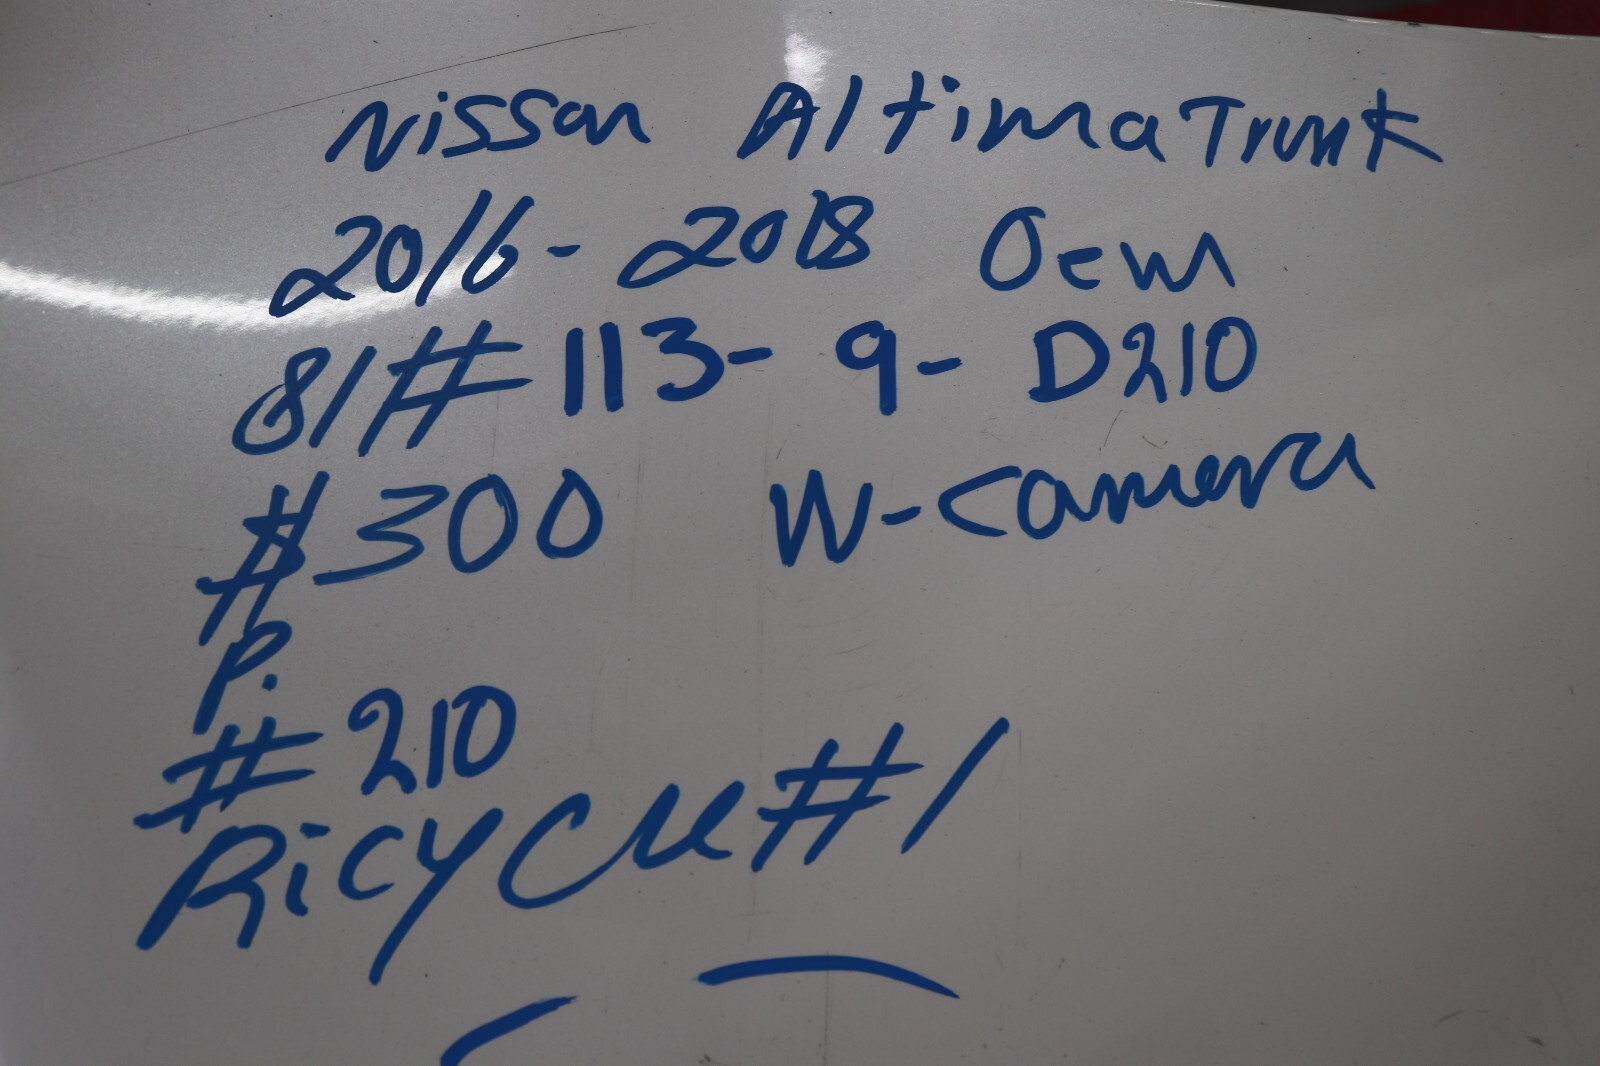 Nissan Altima Trunk
2016-2018 Oem
81# 113-9-D210
#300 W-Camera
P.
#210
Ricycle#1